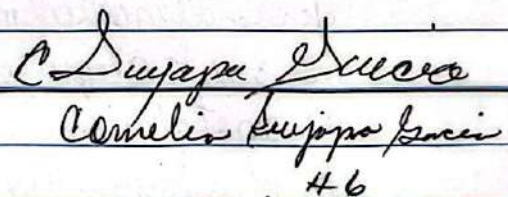 C Suyapa Garcia
Cornelia Suyapa Garcia
#6